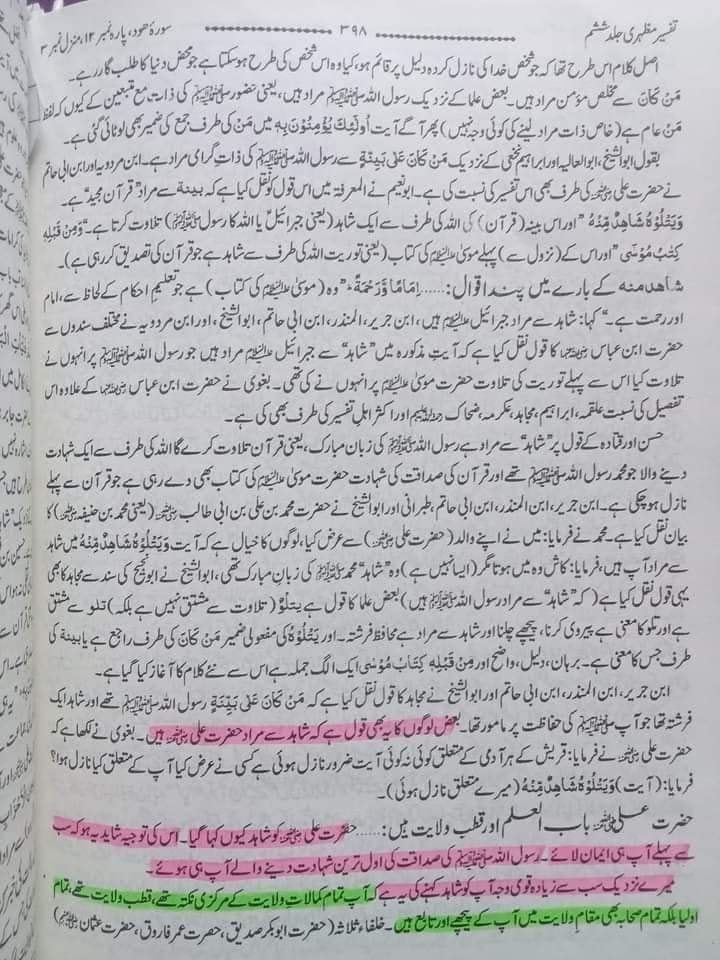 تفسیر مظہری جلد ششم ۳۹۸ سورۂ ھود، پارہ نمبر ۱۲، منزل نمبر ۳
اصل کلام اس طرح تھا کہ جو شخص خدا کی نازل کردہ دلیل پر قائم ہو، کیا وہ اس شخص کی طرح ہو سکتا ہے جو محض دنیا کا طلب گار ہے۔
مَنْ کَانَ سے مخلص مؤمن مراد ہیں۔ بعض علما کے نزدیک رسول اللہ ﷺ مراد ہیں، یعنی حضور ﷺ کی ذات مع متبعین کے کیوں کہ لفظ
مَنْ عام ہے (خاص ذات مراد لینے کی کوئی وجہ نہیں) پھر آگے آیت اُولٰٓئِکَ یُؤْمِنُوْنَ بِہٖ میں مَنْ کی طرف جمع کی ضمیر بھی لوٹائی گئی ہے۔
بقول ابوالشیخ، ابوالعالیہ اور ابراہیم نخعی کے نزدیک مَنْ کَانَ عَلٰی بَیِّنَۃٍ سے رسول اللہ ﷺ کی ذاتِ گرامی مراد ہے۔ ابن مردویہ اور ابن ابی حاتم
نے حضرت علی ؓ کی طرف بھی اس تفسیر کی نسبت کی ہے۔ ابونعیم نے المعرفۃ میں اس قول کو نقل کیا ہے کہ بینۃ سے مراد ”قرآن مجید“ ہے۔
وَیَتْلُوْہُ شَاھِدٌ مِّنْہُ ”اور اس بینہ (قرآن) کی اللہ کی طرف سے ایک شاہد (یعنی جبرائیلؑ یا اللہ کا رسول ﷺ) تلاوت کرتا ہے۔“ وَمِنْ قَبْلِہٖ
کِتٰبُ مُوْسٰٓی ”اور اس کے (نزول سے) پہلے موسیٰ علیہ السلام کی کتاب (یعنی توریت اللہ کی طرف سے شاہد ہے جو قرآن کی تصدیق کر رہی ہے)۔
شاھد منہ کے بارے میں چند اقوال: ...... اِمَامًا وَّرَحْمَۃً ”وہ (موسیٰ علیہ السلام کی کتاب) ہے جو تعلیمِ احکام کے لحاظ سے، امام
اور رحمت ہے۔“ کہا: شاہد سے مراد جبرائیل علیہ السلام ہیں، ابن جریر، المنذر، ابن ابی حاتم، ابوالشیخ، اور ابن مردویہ نے مختلف سندوں سے
حضرت ابن عباس ؓ کا قول نقل کیا ہے کہ آیتِ مذکورہ میں ”شاہد“ سے جبرائیل علیہ السلام مراد ہیں جو رسول اللہ ﷺ پر انہوں نے
تلاوت کیا اس سے پہلے توریت کی تلاوت حضرت موسیٰ علیہ السلام پر انہوں نے کی تھی۔ بغوی نے حضرت ابن عباس ؓ کے علاوہ اس
تفصیل کی نسبت علقمہ، ابراہیم، مجاہد، عکرمہ، ضحاک اور اکثر اہلِ تفسیر کی طرف بھی کی ہے۔
حسن اور قتادہ کے قول پر ”شاہد“ سے مراد ہے رسول اللہ ﷺ کی زبان مبارک، یعنی قرآن تلاوت کرے گا اللہ کی طرف سے ایک شہادت
دینے والا جو محمد رسول اللہ ﷺ تھے اور قرآن کی صداقت کی شہادت حضرت موسیٰ علیہ السلام کی کتاب بھی دے رہی ہے جو قرآن سے پہلے
نازل ہو چکی ہے۔ ابن جریر، ابن المنذر، ابن ابی حاتم، طبرانی اور ابوالشیخ نے حضرت محمد بن علی بن ابی طالب ؓ (یعنی محمد بن حنفیہ ؓ) کا
بیان نقل کیا ہے۔ محمد نے فرمایا: میں نے اپنے والد (حضرت علی ؓ) سے عرض کیا، لوگوں کا خیال ہے کہ آیت وَیَتْلُوْہُ شَاھِدٌ مِّنْہُ میں شاہد
سے مراد آپ ہیں، فرمایا: کاش وہ میں ہوتا مگر (ایسا نہیں ہے) وہ ”شاہد“ محمد ﷺ کی زبانِ مبارک تھی، ابوالشیخ نے ابونجیح کی سند سے مجاہد کا بھی
یہی قول نقل کیا ہے (کہ ”شاہد“ سے مراد رسول اللہ ﷺ ہیں) بعض علما کا قول ہے یتلوٗ (تلاوت سے مشتق نہیں ہے بلکہ) تلو سے مشتق
ہے اور تلوٌ کا معنی ہے پیروی کرنا، پیچھے چلنا اور شاہد سے مراد ہے محافظ فرشتہ۔ اور یَتْلُوْہُ کی مفعولی ضمیر مَنْ کَانَ کی طرف راجع ہے یا بینۃ کی
طرف جس کا معنی ہے۔ برہان، دلیل، واضح اور وَمِنْ قَبْلِہٖ کِتَابُ مُوْسٰی ایک الگ جملہ ہے اس سے نئے کلام کا آغاز کیا گیا ہے۔
ابن جریر، ابن المنذر، ابن ابی حاتم اور ابوالشیخ نے مجاہد کا قول نقل کیا ہے کہ مَنْ کَانَ عَلٰی بَیِّنَۃٍ رسول اللہ ﷺ تھے اور شاہد ایک
فرشتہ تھا جو آپ کی حفاظت پر مامور تھا۔ بعض لوگوں کا یہ بھی قول ہے کہ شاہد سے مراد حضرت علی ؓ ہیں۔ بغوی نے لکھا ہے کہ
حضرت علی ؓ نے فرمایا: قریش کے ہر آدمی کے متعلق کوئی نہ کوئی آیت ضرور نازل ہوئی ہے کسی نے عرض کیا آپ کے متعلق کیا نازل ہوا؟
فرمایا: (آیت) وَیَتْلُوْہُ شَاھِدٌ مِّنْہُ (میرے متعلق نازل ہوئی)۔
حضرت علی ؓ باب العلم اور قطب ولایت میں: ...... حضرت علی ؓ کو شاہد کیوں کہا گیا۔ اس کی توجیہ شاید یہ ہو کہ سب
سے پہلے آپ ہی ایمان لائے۔ رسول اللہ ﷺ کی صداقت کی اول ترین شہادت دینے والے آپ ہی ہوئے۔
میرے نزدیک سب سے زیادہ قوی وجہ آپ کو شاہد کہنے کی یہ ہے کہ آپ تمام کمالاتِ ولایت کے مرکزی نکتہ تھے، قطب ولایت تھے، تمام
اولیا بلکہ تمام صحابہ بھی مقامِ ولایت میں آپ کے پیچھے اور تابع ہیں۔ خلفاء ثلاثہ (حضرت ابوبکر صدیق، حضرت عمر فاروق، حضرت عثمان ؓ)